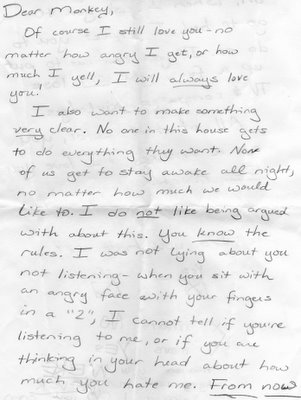 Dear Monkey,
Of course I still love you - no
matter how angry I get, or how
much I yell, I will always love
you!
I also want to make something
very clear. No one in this house gets
to do everything they want. None
of us get to stay awake all night,
no matter how much we would
like to. I do not like being argued
with about this. You know the
rules. I was not lying about you
not listening - when you sit with
an angry face with your fingers
in a "2", I cannot tell if you're
listening to me, or if you are
thinking in your head about how
much you hate me. From now